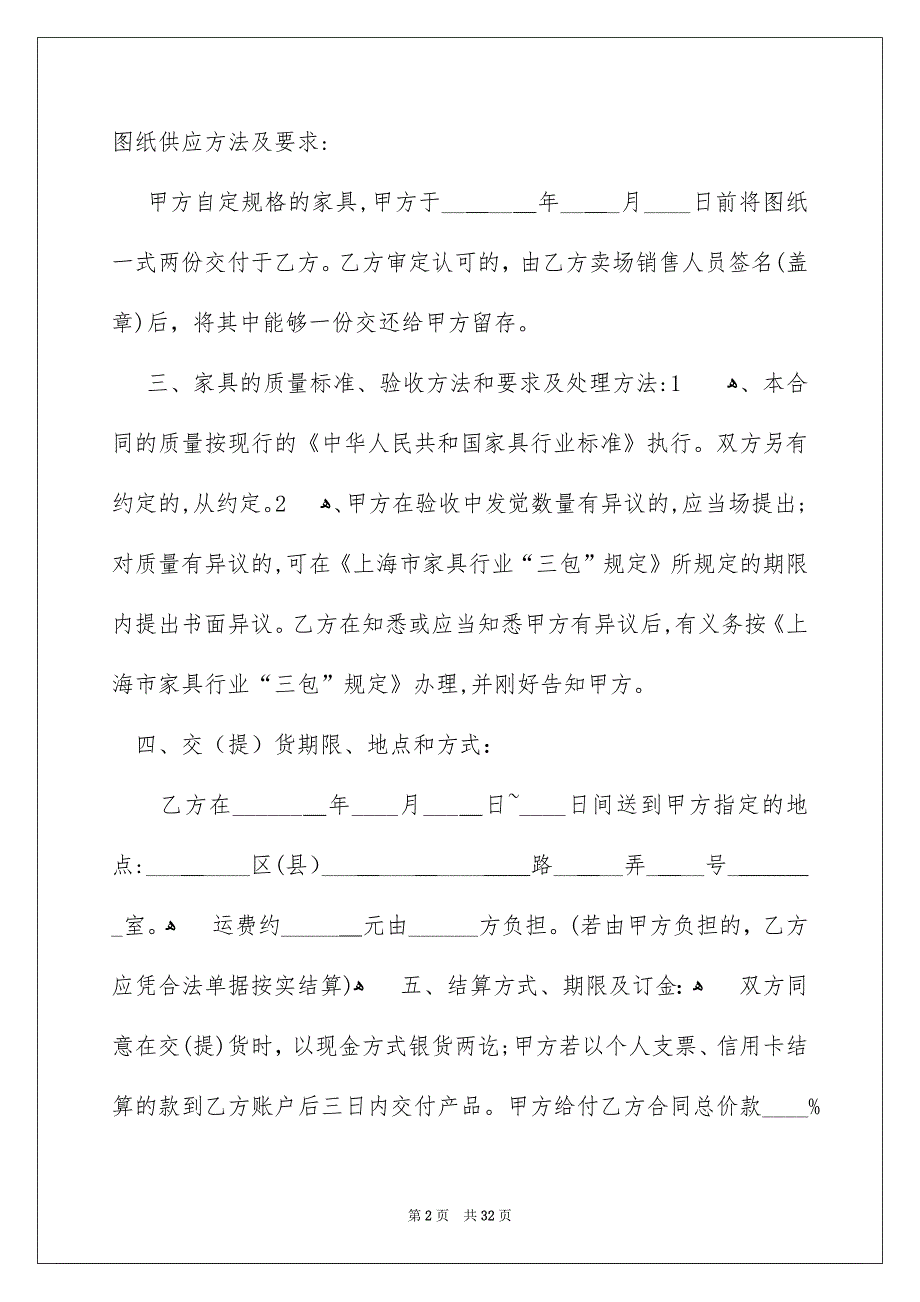 图纸供应方法及要求:
甲方自定规格的家具,甲方于________年_____月____日前将图纸
一式两份交付于乙方。乙方审定认可的，由乙方卖场销售人员签名(盖
章)后，将其中能够一份交还给甲方留存。
三、家具的质量标准、验收方法和要求及处理方法:1 ﻫ、本合
同的质量按现行的《中华人民共和国家具行业标准》执行。双方另有
约定的,从约定。2 ﻫ、甲方在验收中发觉数量有异议的,应当场提出;
对质量有异议的,可在《上海市家具行业“三包”规定》所规定的期限
内提出书面异议。乙方在知悉或应当知悉甲方有异议后,有义务按《上
海市家具行业“三包”规定》办理,并刚好告知甲方。
四、交（提）货期限、地点和方式：
乙方在________年____月_____日~____日间送到甲方指定的地
点:_________区(县）__________________路______弄_____号_______
_室。ﻫ 运费约_______元由______方负担。(若由甲方负担的，乙方
应凭合法单据按实结算)ﻫ 五、结算方式、期限及订金：ﻫ 双方同
意在交(提)货时，以现金方式银货两讫;甲方若以个人支票、信用卡结
算的款到乙方账户后三日内交付产品。甲方给付乙方合同总价款____%
第 2 页 共 32 页